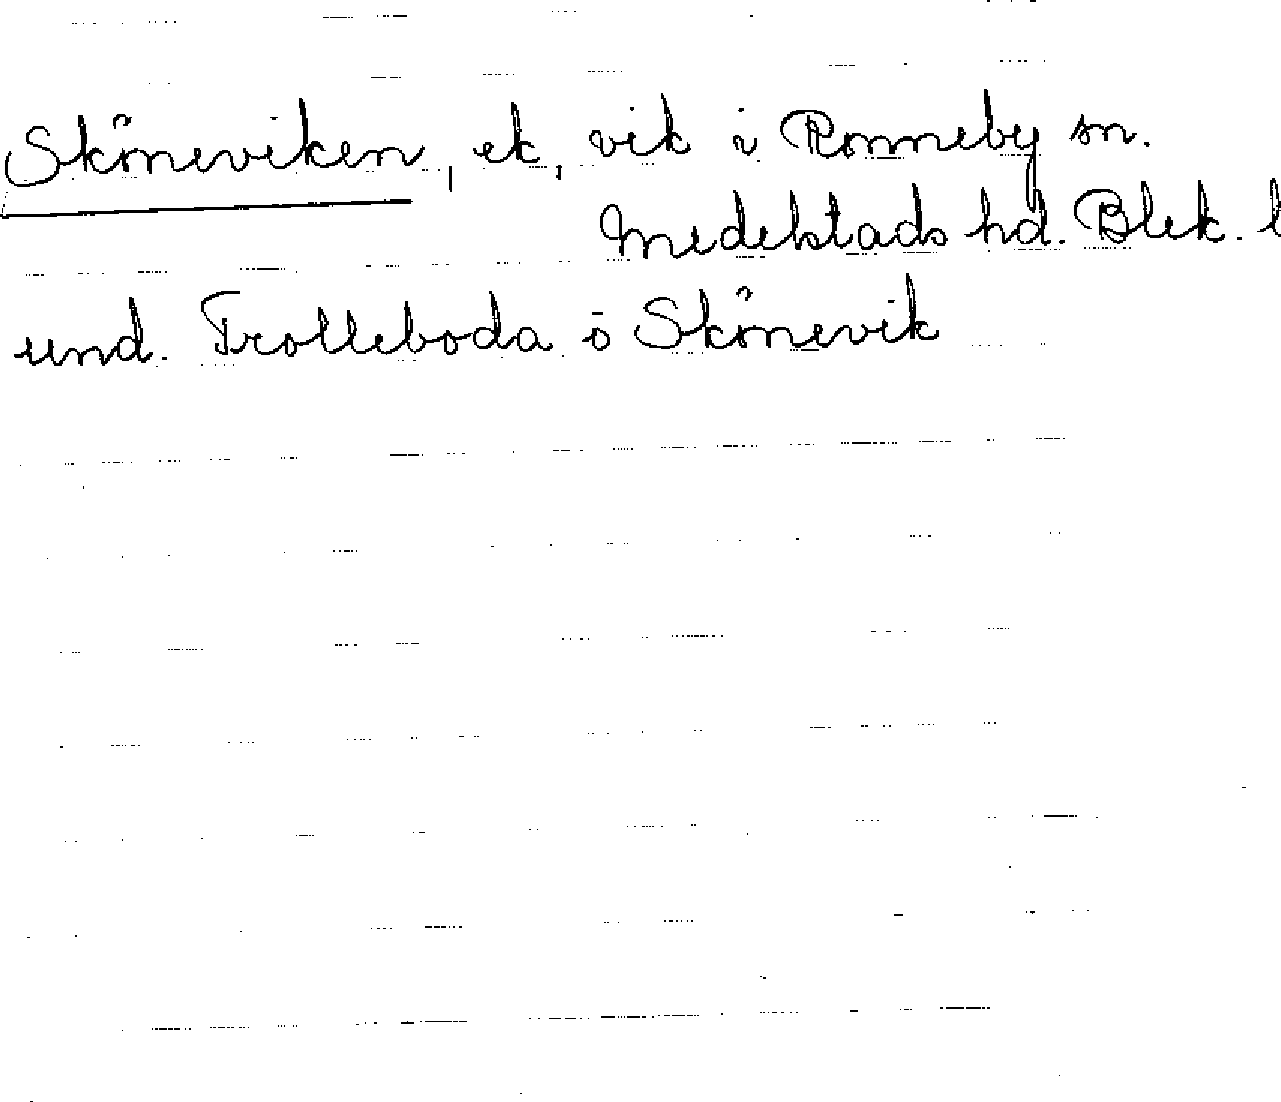 Sköneviken, ek, vik i Ronneby sn.
Medelstads hd. Blek. l
und. Trolleboda o Skönevik